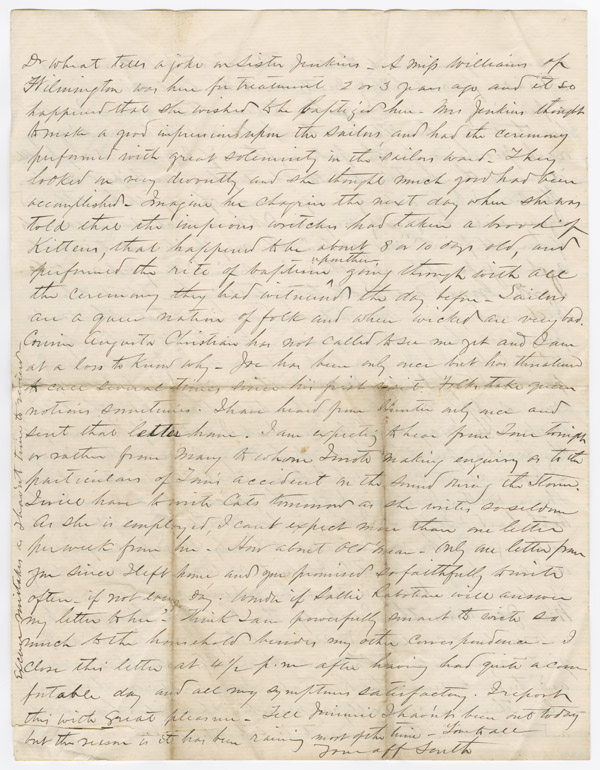 Dr Wheat tells a joke on Sister Jenkins - A Miss Williams of
Wilmington was here for treatment 2 or 3 years ago, and it so
happened that she wished to be baptized here - Mrs Jenkins thought
to make a good impression upon the sailors, and had the ceremony
performed with great solemnity in the sailors ward - They
looked on very devoutly and she thought much good had been
accomplished - Imagine her chagrin the next day when she was
told that the impious wretches had taken a brood of
Kittens, that happened to be about 8 or 10 days old, and
performed the rite of baptism upon them, going through with all
the ceremony they had witnessed the day before - Sailors
are a queer nation of folk and when wicked are very bad.
Cousin Augusta Christian has not called to see me yet and I am
at a loss to know why - Joe has been only once but has threatened
to call several times since his first visit Folks take queer
notions sometimes. I have heard from only once and
sent that letter home. I am expecting to hear from Tom
or rather from Mary to whom I wrote making enquiry as to the
particulars of Tom's accident on the Sound during the storm.
I will have to write Cats tomorrow as she writes so seldom
As she is employed, I can't expect more than one letter
per week from her - How about Old Mear - Only one letter from
you since I left home and you promised so faithfully to write
often - if not every day. Wonder if Sallie will answer
my letter to her? Think I am powerfully smart to write so
much to the household besides my other correspondence - I
close this letter at 4 1/2 p.m. after having had quite a com
fortable day and all my symptoms satisfactory. I report
this with great pleasure - Tell Minnie I havent been out today
but the reason is it has been raining most of the time - Love to all
Your aff South
Excuse mistakes as I havent time to review